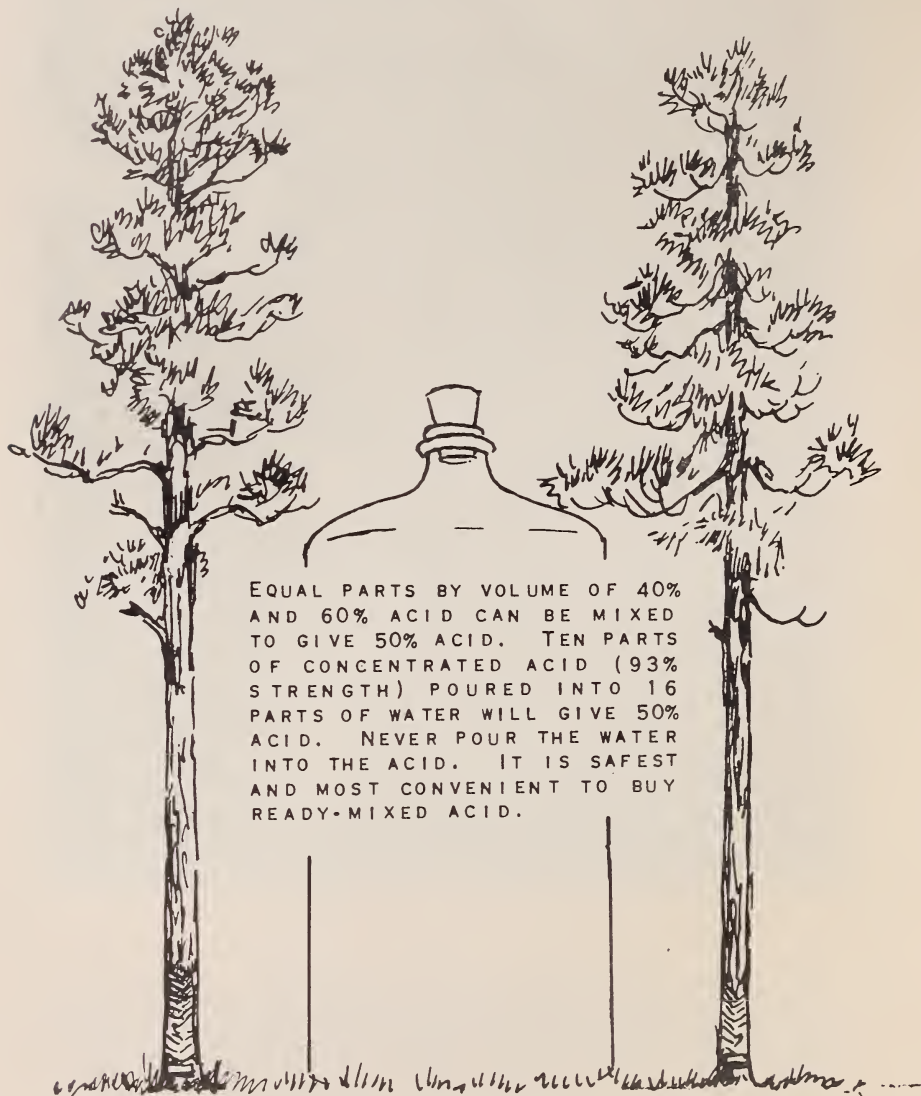 EQUAL PARTS BY VOLUME OF 40%
AND 60% ACID CAN BE MIXED
TO GIVE 50% ACID. TEN PARTS
OF CONCENTRATED ACID (93%
STRENGTH) POURED INTO 16
PARTS OF WATER WILL GIVE 50%
ACID. NEVER POUR THE WATER
INTO THE ACID. IT IS SAFEST
AND MOST CONVENIENT TO BUY
READY-MIXED ACID.